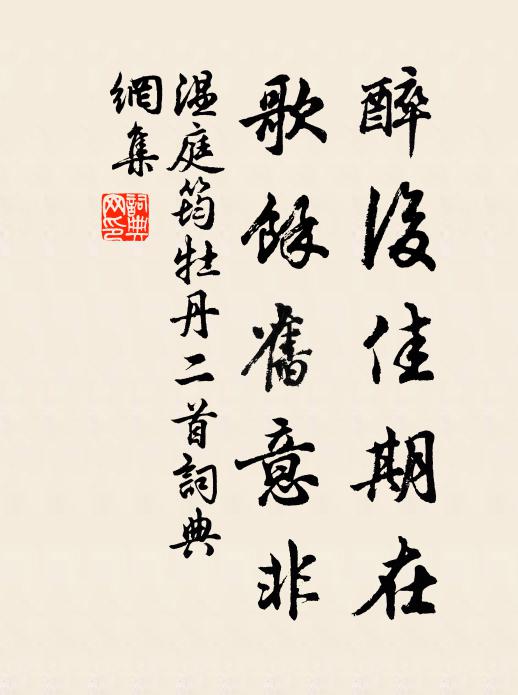 醉後佳期在
歌餘舊意非
温庭筠牡丹二首詞典
網集
詞典
网印